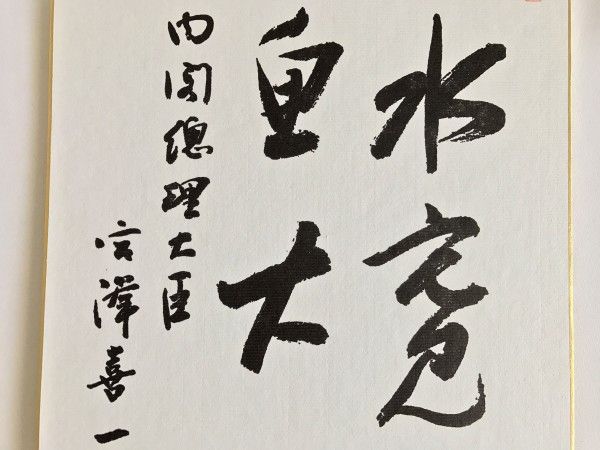 水寛
魚大
内閣總理大臣
宮澤喜一